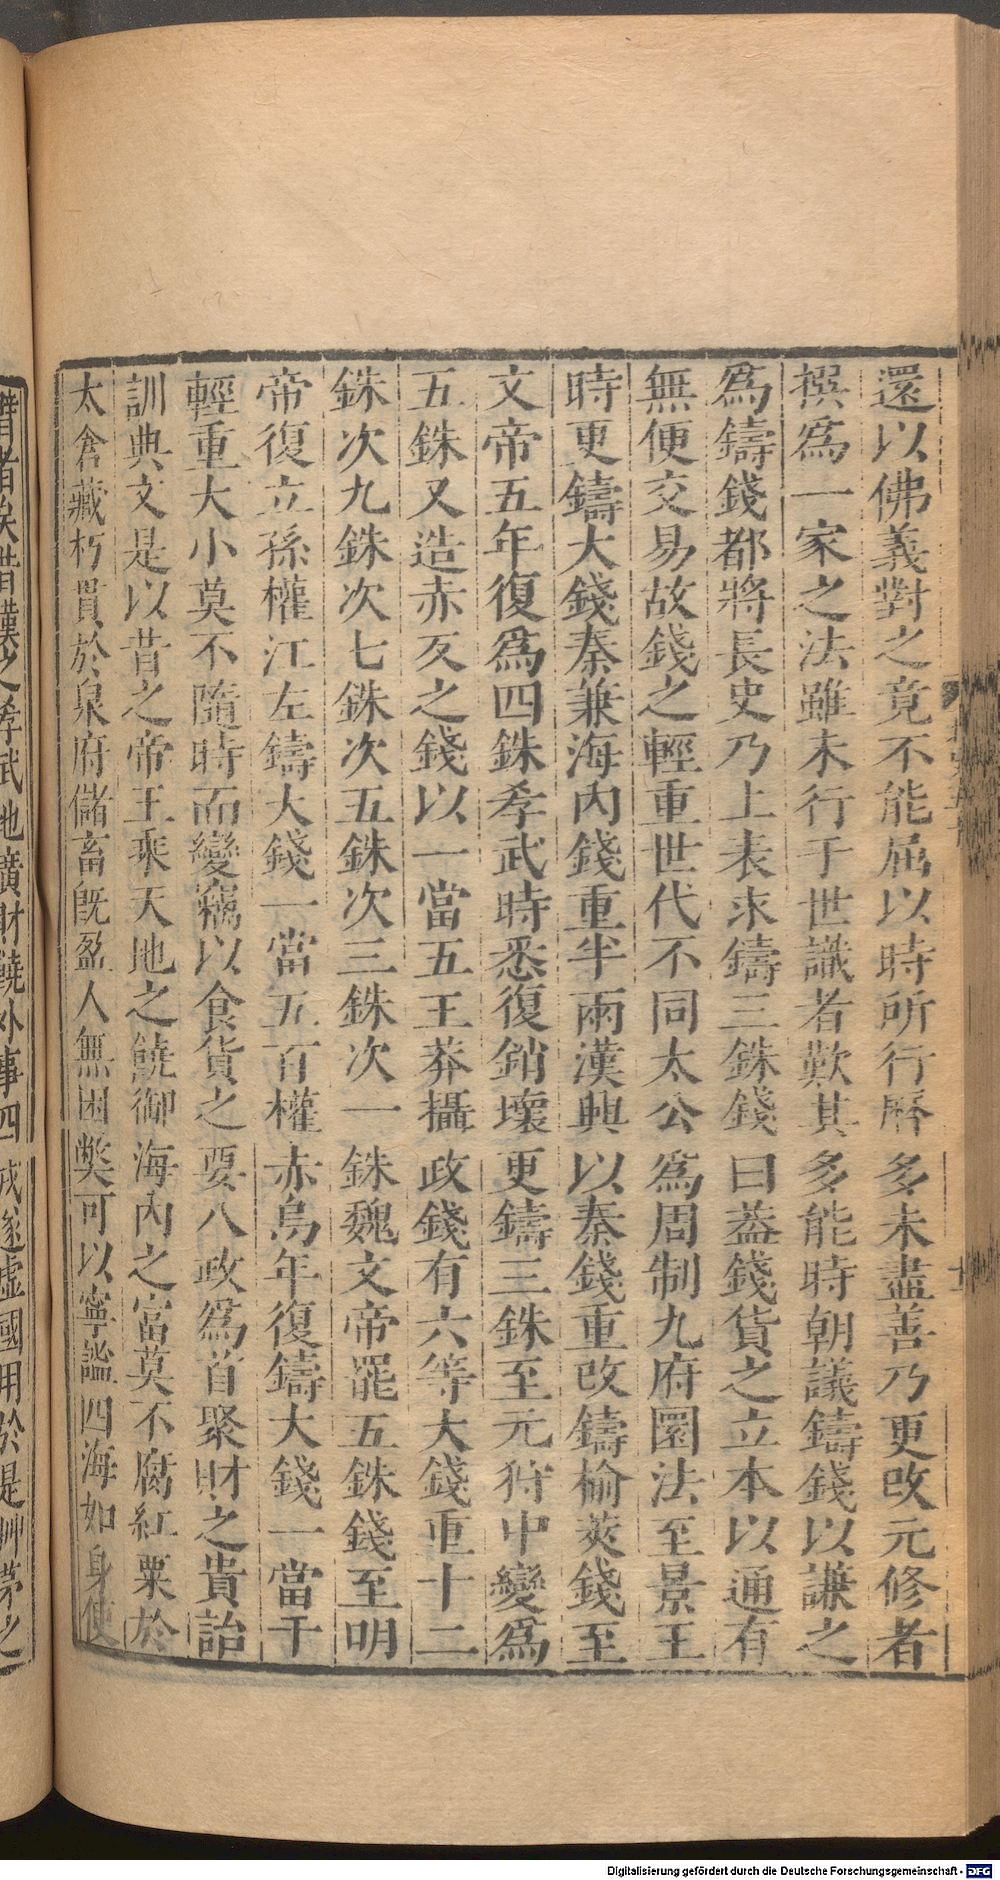 還以佛義對之竟不能屈以時所行曆多未盡善乃更改元修者
撰爲一家之法雖未行于世識者歎其多能時朝議鑄錢以謙之
爲鑄錢都將長史乃上表求鑄三銖錢曰蓋錢貨之立本以通有
無便交易故錢之輕重世代不同太公爲周制九府圜法至景王
時更鑄大錢秦兼海內錢重半兩漢興以秦錢重改鑄榆莢錢至
文帝五年復爲四銖孝武時悉復銷壞更鑄三銖至元狩中變爲
五銖又造赤仄之錢以一當五王莽攝政錢有六等大錢重十二
銖次九銖次七銖次五銖次三銖次一銖魏文帝罷五銖錢至明
帝復立孫權江左鑄大錢一當五百權赤烏年復鑄大錢一當千
輕重大小莫不隨時而變竊以食貨之要八政爲首聚財之貴詒
訓典文是以昔之帝王乘天地之饒御海內之富莫不腐紅粟於
太倉藏朽貫於泉府儲畜旣盈人無困弊可以寧謐四海如身使
之孝武地廣財饒外事四戎遂虛國用於是草茅之
Digitalisierung gefördert durch die Deutsche Forschungsgemeinschaft - DFG